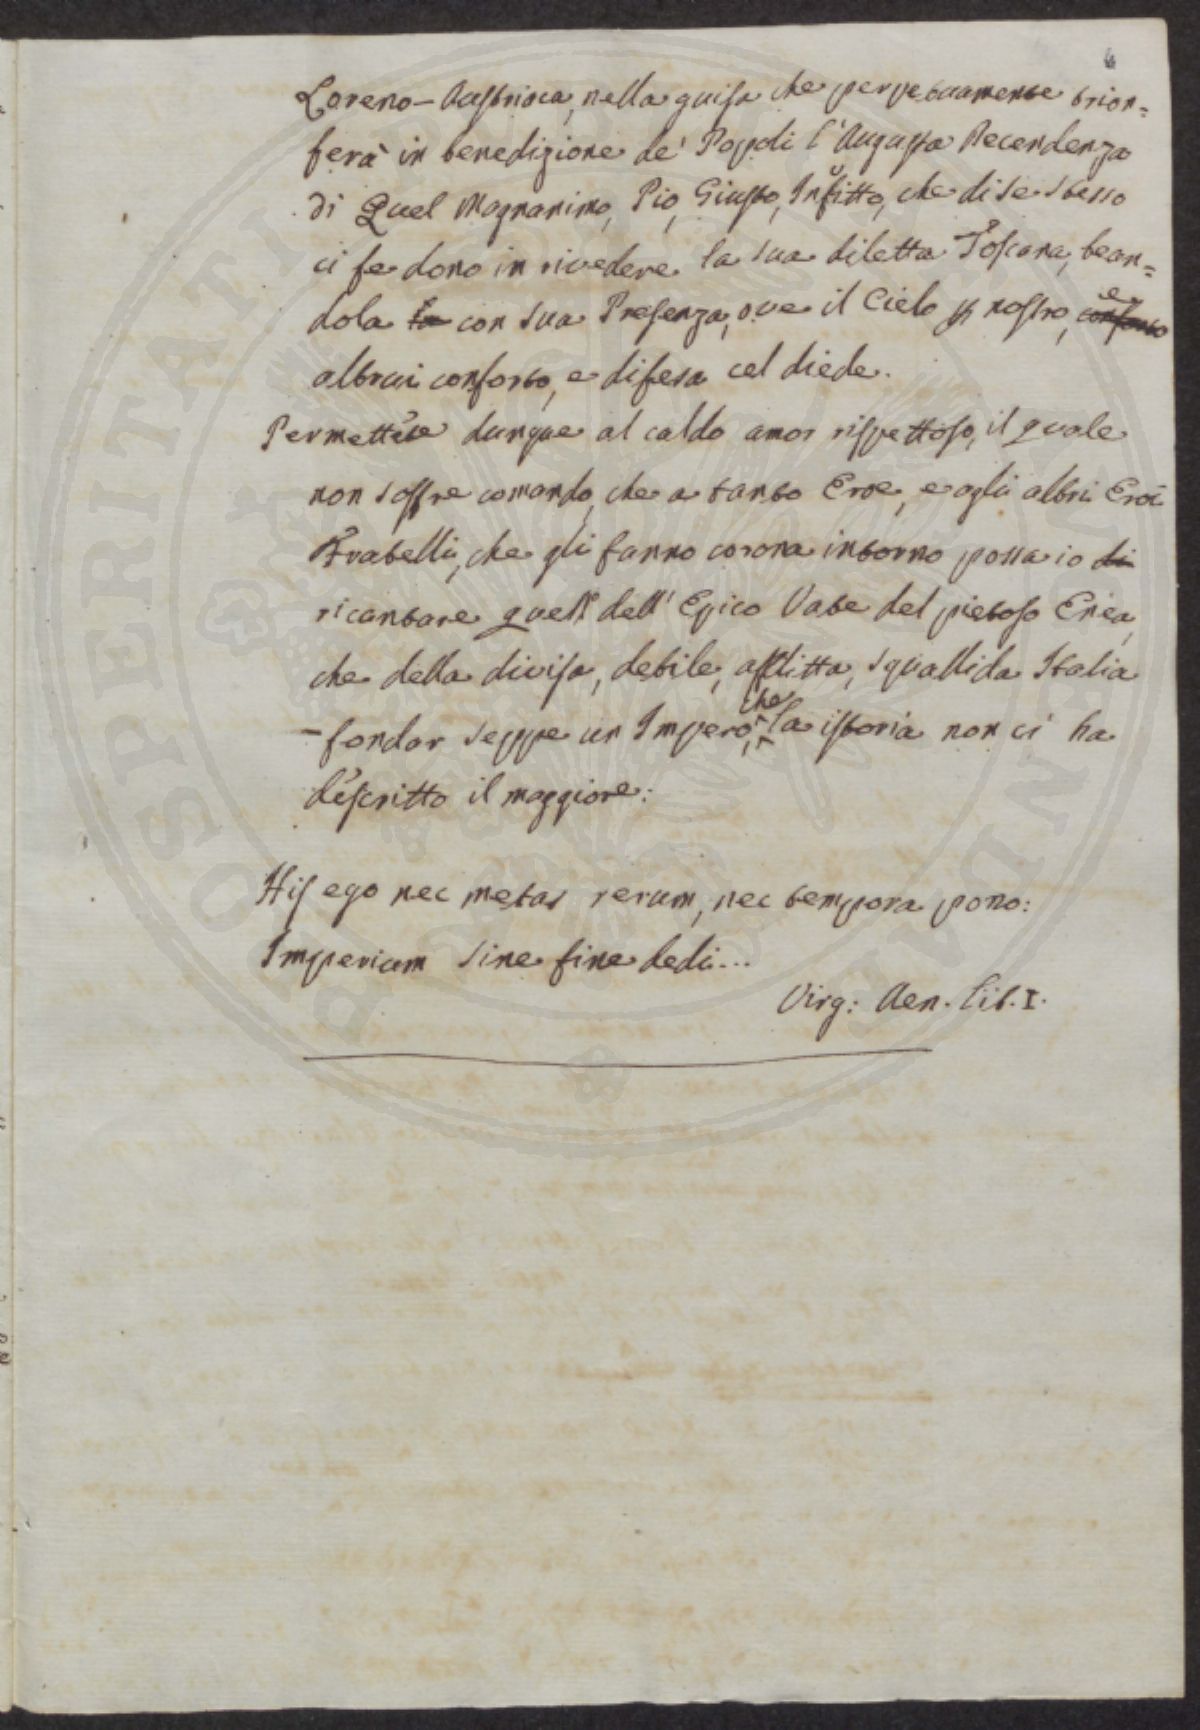 6
Loreno-Austriaca, nella guisa che perpetuamente trion=
ferà in benedizione de' Popoli l'Augusta Recendenza
di Quel Magnanimo, Pio, Giusto, Invitto, che di se stesso
ci fe dono in rivedere la sua diletta Toscana, bean=
dola la con sua Presenza, ove il Cielo p nostro, conforto e
altrui conforto, e difesa cel diede.
Permettete dunque al caldo amor rispettoso, il quale
non soffre comando, che a tanto Eroe, e agli altri Eroi
Fratelli, che gli fanno corona intorno possa io di
ricantare quell dell' Epico Vate del pietoso Enea,
che della divisa, debile, afflitta, squallida Italia
fondar seppe un Impero, che la istoria non ci ha
descritto il maggiore:
His ego nec metas rerum, nec tempora pono:
Imperium sine fine dedi...
Virg: Aen. Lib. I.
PROSPERITATI PUBLICAE